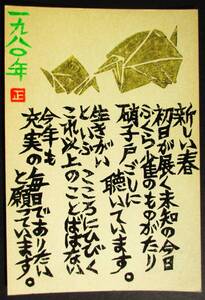 一九八〇年
正
新しい春
初日が展く未知の今日
ふくら雀のものがたり
硝子戸ごしに 聴いています。
生きがい
といふ こころにひびく
これ以上のことばはない
今年も
充実の毎日でありたい
と願っています。